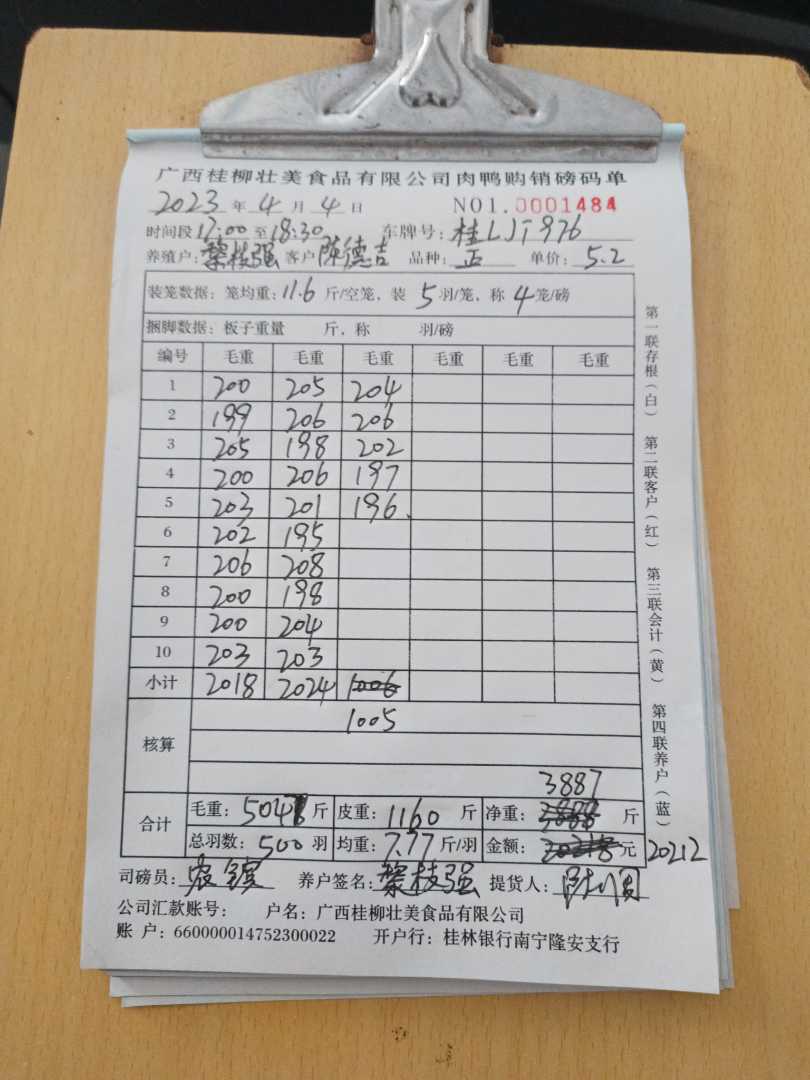 广西桂柳壮美食品有限公司肉鸭购销磅码单
2023 年 4 月 4 日 NO1.0001484
时间段 17:00 至 18:30 车牌号: 桂LJT976
养殖户: 黎枝强 客户 陈德吉 品种: 正 单价: 5.2
装笼数据: 笼均重: 11.6 斤/空笼, 装 5 羽/笼, 称 4 笼/磅
捆脚数据: 板子重量 斤, 称 羽/磅
编号 毛重 毛重 毛重 毛重 毛重 毛重
1 200 205 204
2 199 206 206
3 205 198 202
4 200 206 197
5 203 201 196
6 202 195
7 206 208
8 200 198
9 200 204
10 203 203
小计 2018 2024 1006
核算 1005
3887
合计 毛重: 5047 斤 皮重: 1160 斤 净重: 3888 斤
总羽数: 500 羽 均重: 7.77 斤/羽 金额: 20218 元 20212
司磅员: 养户签名: 黎枝强 提货人:
公司汇款账号: 户名: 广西桂柳壮美食品有限公司
账 户: 660000014752300022 开户行: 桂林银行南宁隆安支行
第一联存根(白) 第二联客户(红) 第三联会计(黄) 第四联养户(蓝)